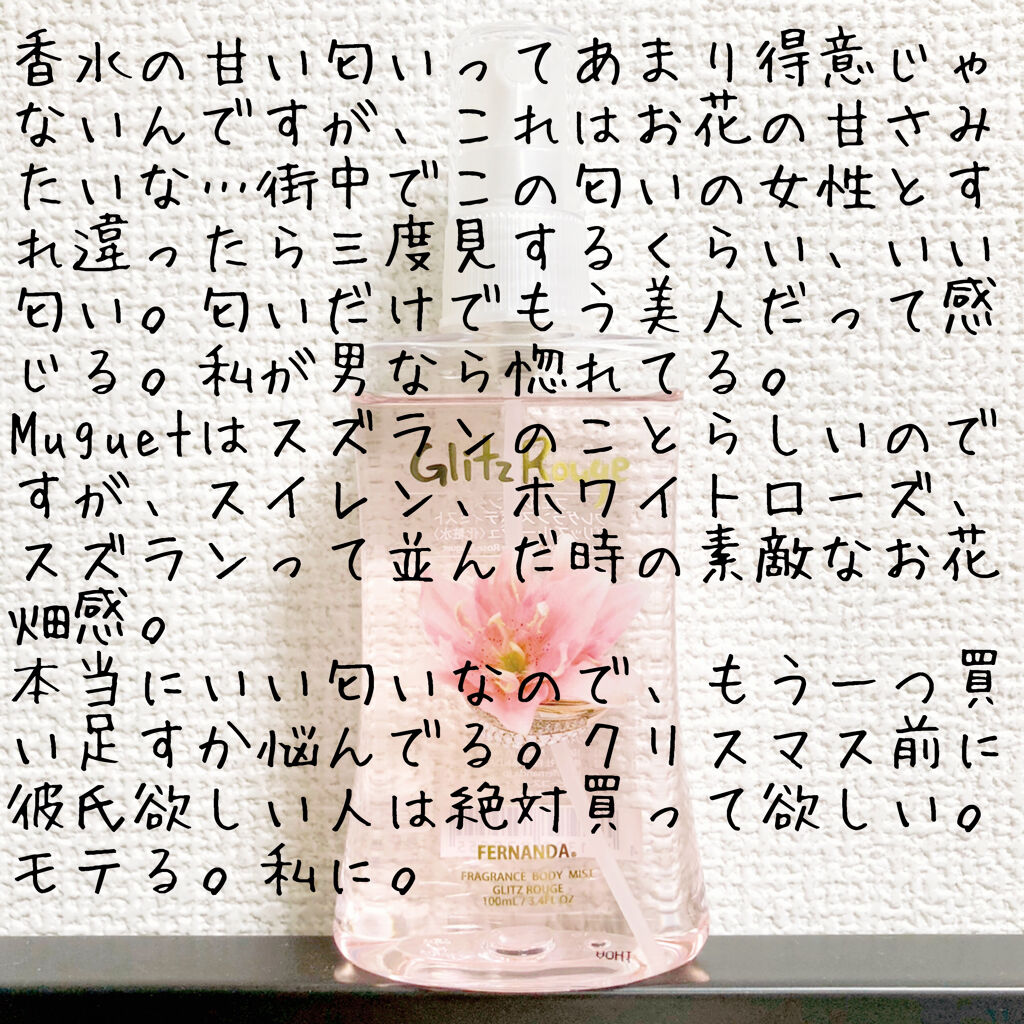 香水の甘い匂いってあまり得意じゃ
ないんですが、これはお花の甘さみ
たいな…街中でこの匂いの女性とす
れ違ったら三度見するくらい、いい
匂い。匂いだけでもう美人だって感
じる。私が男なら惚れてる。
Muguetはスズランのことらしいので
すが、スイレン、ホワイトローズ、
スズランって並んだ時の素敵なお花
畑感。
本当にいい匂いなので、もう一つ買
い足すか悩んでる。クリスマス前に
彼氏欲しい人は絶対買って欲しい。
モテる。私に。
Glitz Rouge
FERNANDA®
FRAGRANCE BODY MIST
GLITZ ROUGE
100mL / 3.4FL OZ